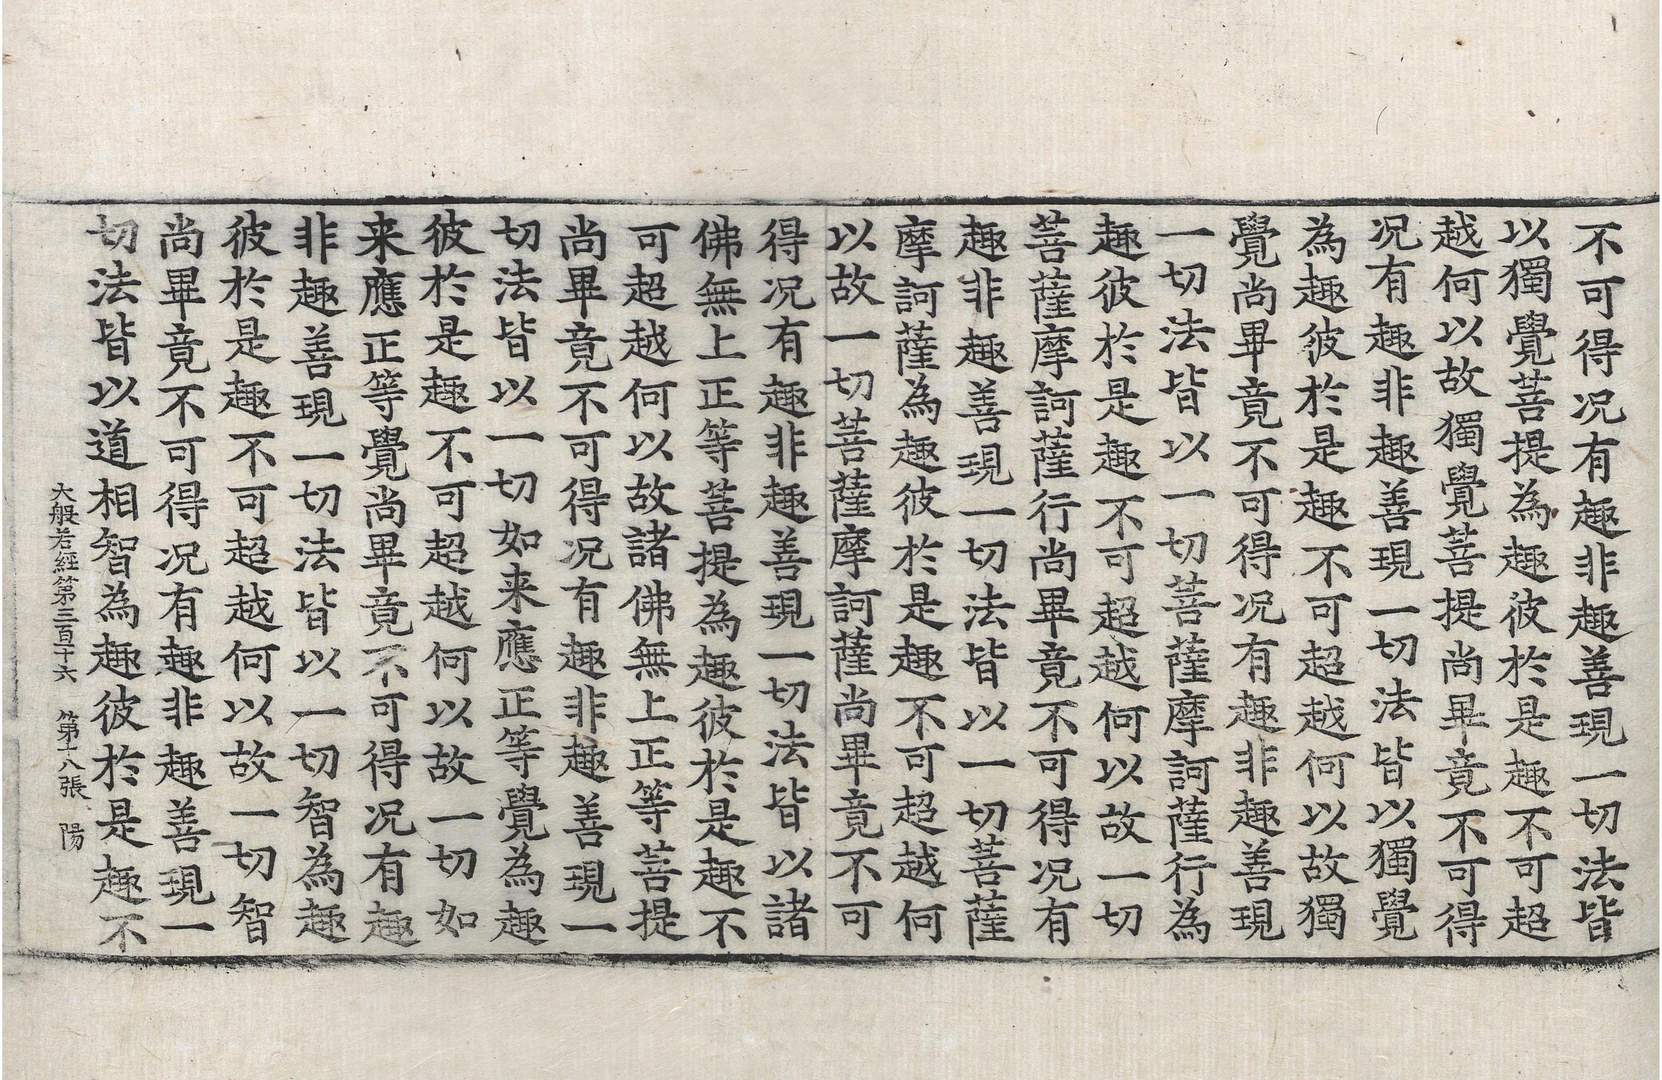 不可得况有趣非趣善現一切法皆
以獨覺菩提為趣彼於是趣不可超
越何以故獨覺菩提尚畢竟不可得
况有趣非趣善現一切法皆以獨覺
為趣彼於是趣不可超越何以故獨
覺尚畢竟不可得况有趣非趣善現
一切法皆以一切菩薩摩訶薩行為
趣彼於是趣不可超越何以故一切
菩薩摩訶薩行尚畢竟不可得况有
趣非趣善現一切法皆以一切菩薩
摩訶薩為趣彼於是趣不可超越何
以故一切菩薩摩訶薩尚畢竟不可
得况有趣非趣善現一切法皆以諸
佛無上正等菩提為趣彼於是趣不
可超越何以故諸佛無上正等菩提
尚畢竟不可得况有趣非趣善現一
切法皆以一切如来應正等覺為趣
彼於是趣不可超越何以故一切如
来應正等覺尚畢竟不可得况有趣
非趣善現一切法皆以一切智為趣
彼於是趣不可超越何以故一切智
尚畢竟不可得况有趣非趣善現一
切法皆以道相智為趣彼於是趣不
大般若經第三百十六 第十八張 陽